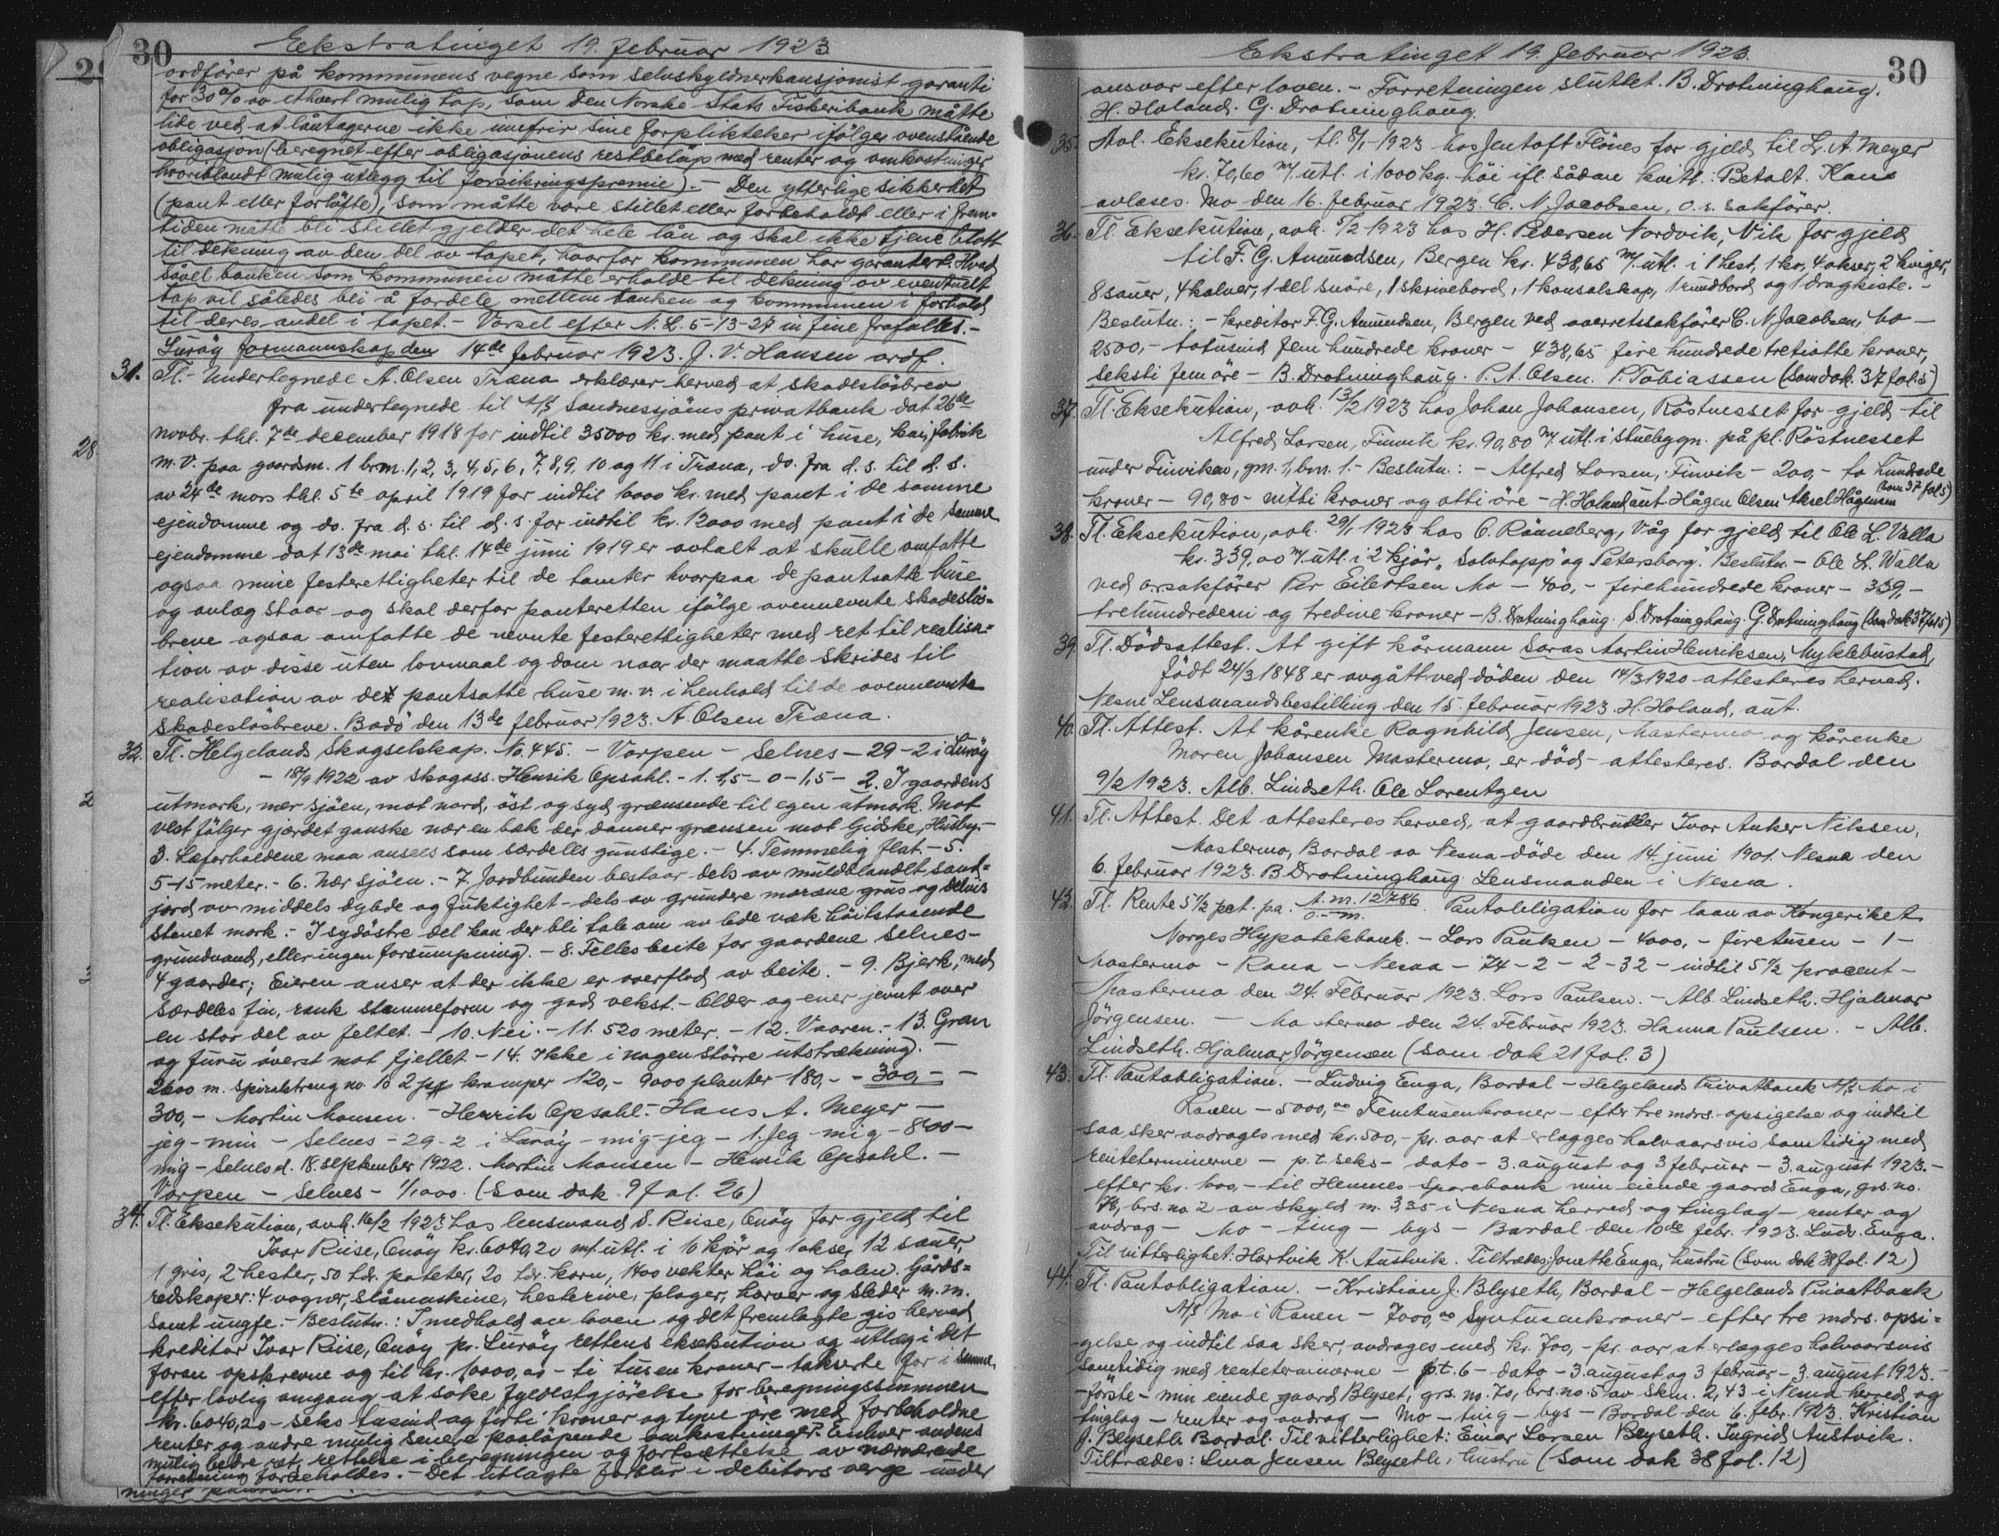 30
Ekstratinget 19. februar 1923
ordfører på kommunens vegne som selvskyldnerkausjonist garanti
for 30 % av ethvert mulig tap, som Den Norske Stats Fiskeribank måtte
lide ved at låntagerne ikke innfrir sine forpliktelser ifølge ovenstående
obligasjon (beregnet efter obligasjonens restbeløp med renter og omkostninger
hvoriblandt mulig utlegg til forsikringspremie). - Den ytterlige sikkerhet
(pant eller forløfte), som måtte være stillet eller forbeholdt eller i frem-
tiden måtte bli stillet gjelder det hele lån og skal ikke tjene blott
til dekning av den del av tapet, hvorfor kommunen har garantert. Hvad
såvel banken som kommunen måtte erholde til dekning av eventuelt
tap vil således bli å fordele mellem banken og kommunen i forhold
til deres andel i tapet. - Varsel efter N. L. 5-13-27 in fine frafalles. -
Lurøy formannskap den 14de februar 1923. J. V. Hansen ordf.
31. Tl. - Undertegnede A. Olsen Træna erklærer herved at skadesløsbrev
fra undertegnede til A/S Sandnessjøens privatbank dat 26de
novbr. thl. 7de december 1918 for indtil 35000 kr. med pant i huse, kai, fabrik
m. v. paa gaardsm. 1 brm. 1, 2, 3, 4, 5, 6, 7, 8, 9, 10 og 11 i Træna, do. fra d. s. til d. s.
av 24de mars thl. 5te april 1919 for indtil 10000 kr. med pant i de samme
ejendomme og do. fra d. s. til d. s. for indtil kr. 12000 med pant i de samme
ejendomme dat 13de mai thl. 14de juni 1919 er avtalt at skulle omfatte
ogsaa mine festerettigheter til de tomter hvorpaa de pantsatte huse
og anlæg staar og skal derfor panteretten ifølge ovennevnte skadesløs-
breve ogsaa omfatte de nevnte festerettigheter med ret til realisa-
tion av disse uten lovmaal og dom naar der maatte skrides til
realisation av de pantsatte huse m. v. i henhold til de ovennevnte
skadesløsbreve. Bodø den 13de februar 1923. A. Olsen Træna.
32. Tl. Helgelands Skogselskap. No. 445. - Varpen - Selnes - 29-2 i Lurøy
- 18/9 1922 av skogass. Henrik Opsahl. - 1. 1,5 - 0 - 1,5 - 2. I gaardens
utmark, nær sjøen, mot nord, øst og syd grænsende til egen utmark. Mot
vest følger gjærdet ganske nær en bæk der danner grænsen mot Giøske, Husby. -
3. Læforholdene maa ansees som særdeles gunstige. - 4. Temmelig flat. - 5.
5-15 meter. - 6. Nær sjøen. - 7. Jordbunden bestaar dels av muldblandet sand-
jord av middels dybde og fuktighet - dels av grundere moræne grus og delvis
stenet mark. - I sydøstre del kan der bli tale om av lede væk høitstaaende
grundvand, eller ingen forsumpning). - 8. Felles beite for gaardene Selnes -
4 gaarder; Eieren anser at der ikke er overflod av beite. - 9. Bjerk, med
særdeles fin, rank stammeform og god vekst. - Older og ener jevnt over
en stor del av feltet. - 10. Nei. - 11. 520 meter. - 12. Vaaren. - 13. Gran
og furu øverst mot fjellet - 14. Ikke i nogen større utstrækning). -
2600 m. spiralstreng no. 10 2 kramper 120,- 9000 planter 180,- - 300,- -
300,- Martin Monsen. - Henrik Opsahl. - Hans A. Meyer -
jeg - min - Selnes - 29-2 i Lurøy - mig - jeg - 1. Jeg - mig - 800 -
mig - Selnes d. 18. september 1922. Martin Monsen - Henrik Opsahl. -
Varpen - Selnes - 1/1000. (Som dok 9 fol. 26)
34. Tl. Eksekution, avh. 16/2 1923 hos lensmand S. Riise, Onøy for gjeld til
Ivar Riise, Onøy kr. 6040,20 m/ utl. i 10 kjør og 1 okse, 12 sauer,
1 gris, 2 hester, 50 tdr. poteter, 20 tdr. korn, 1400 vekter høi og halm. Gårds-
redskaper: 4 vogner, slåmaskine, hesterive, ploger, harver og sleder m. m.
samt ungfe. - Beslutn.: I medhold av loven og det fremlagte gis herved
kreditor Ivar Riise, Onøy pr. Lurøy rettens eksekution og utlæg i det
foran opskrevne og til kr. 10000,00 - ti tusen kroner - takserte for i samme
efter lovlig omgang at søke fyldestgjørelse for beregningssummen
kr. 6040,20 - seks tusind og firti kroner og tyve øre med forbeholdne
renter og andre mulig senere paaløpende omkostninger. Enhver andens
mulig bedre ret, rettelse i beregningen og fortsættelse av nærværende
forretning forbeholdes. - Det utlagte forblir i debitors verge under
30
Ekstratinget 19. februar 1923.
ansvar efter loven. - Forretningen sluttet. B. Drotninghaug.
H. Høland. G. Drotninghaug
35. Avl. Eksekution, tl. 8/1 1923 hos Jentoft Flønes for gjeld til L. A. Meyer
kr. 70,60 m/ utl. i 1000 kg. høi ifl. sådan kvitt.: Betalt. Kan
avlæses. Mo den 16. februar 1923. C. N. Jacobsen, o. r. sakfører.
36. Tl. Eksekution, avh. 5/2 1923 hos H. Pedersen Nordvik, Vik for gjeld
til F. G. Amundsen, Bergen kr. 438,65 m/ utl. i 1 hest, 1 ku, 4 okser, 2 kviger,
8 sauer, 4 kalver, 1 del snøre, 1 skrivebord, 1 konsolskap, 1 rundbord og 1 dragkiste. -
Beslutn.: - kreditor F. G. Amundsen, Bergen ved overretssakfører C. N. Jacobsen, Mo -
2500,- totusind fem hundrede kroner - 438,65 fire hundrede tretiotte kroner,
seksti fem øre - B. Drotninghaug. P. A. Olsen. P. Tobiassen (Som dok. 37 fol. 5)
37. Tl. Eksekution, avh. 13/2 1923 hos Johan Johansen, Røstnesset for gjeld til
Alfred Larsen, Finvik kr. 90,80 m/ utl. i stuebygn. på pl. Røstnesset
under Finviken, gm. 1, bm. 1. - Beslutn.: - Alfred Larsen, Finvik - 200,- to hundrede
kroner - 90,80 - nitti kroner og otti øre - H. Høland aut Hågen Olsen Aksel Hågensen (Som 37 fol 5)
38. Tl. Eksekution, avh. 29/1 1923 hos O. Rønneberg, Våg for gjeld til Ole L. Valla
kr. 339,00 m/ utl. i 2 kjør "Sølvtopp" og "Petersborg". Beslutn. - Ole L. Walla
ved o.r.sakfører Per Eilertsen Mo - 400,- firehundrede kroner - 339,-
trehundredeni og tredive kroner - B. Drotninghaug. S. Drotninghaug. G. Drotninghaug (Som dok 37 fol 5)
39. Tl. Dødsattest. At gift kårmann Saras Martin Henriksen, Myklebustad,
født 24/3 1848 er avgått ved døden den 14/3 1920 attesteres herved.
Nesne Lensmandsbestilling den 15. februar 1923. H. Høland, aut.
40. Tl. Attest. At kårenke Ragnhild Jensen, Mastermo og kårenke
Maren Johansen Mastermo, er død - attesteres. Bardal den
9/2 1923. Alb. Lindseth. Ole Lorentzen
41. Tl. Attest. Det attesteres herved, at gaardbruker Ivar Anker Nilssen,
Mastermo, Bardal av Nesna døde den 14. juni 1901. Nesna den
6. februar 1923. B Drotninghaug Lensmanden i Nesna.
42. Tl. Rente 5 1/2 pct. p.a. A. m. 12786. Pantobligation for laan av Kongeriket
Norges Hypotekbank. - Lars Paulsen - 4000,- firetusen - 1 -
Mastermo - Rana - Nesna - 74-2 - 2-32 - indtil 5 1/2 procent -
Mastermo den 24. Februar 1923. Lars Paulsen. - Alb. Lindseth. Hjalmar
Jørgensen. - Mastermo den 24. Februar 1923. Hanna Paulsen. - Alb.
Lindseth. Hjalmar Jørgensen (Som dok 21 fol. 3)
43. Tl. Pantobligation. - Ludvig Enga, Bardal - Helgelands Privatbank A/S Mo i
Ranen - 5000,00 Femtusenkroner - efter tre mdrs. opsigelse og indtil
saa sker avdrages med kr. 500,- pr. aar at erlægges halvaarsvis samtidig med
renteterminerne - p. t. seks - dato - 3. august og 3 februar - 3. august 1923. -
efter kr. 1000,- til Hemnes Sparebank min eiende gaard Enga, grs. no.
78, brs. no 2 av skyld m. 3,35 i Nesna herred og tinglag - renter og
avdrag - Mo - ting - bys - Bardal den 10de febr. 1923. Ludv. Enga.
Til vitterlighet: Hartvik K. Austvik. Tiltrædes: Jonetta Enga, hustru (Som dok 38 fol. 12)
44. Tl. Pantobligation. - Kristian J. Blyseth, Bardal - Helgelands Privatbank
A/S Mo i Ranen - 7000,00 Syvtusenkroner - efter tre mdrs. opsi-
gelse og indtil saa sker, avdrages med kr. 700,- pr. aar at erlægges halvaarsvis
samtidig med renteterminerne - p. t. 6 - dato - 3. august og 3 februar - 3. august 1923. -
første - min eiende gaard Blyset, grs. no. 70, brs. no. 5 av skm. 2,43 i Nesna herred og
tinglag - renter og avdrag - Mo - ting - bys - Bardal den 6. febr. 1923. Kristian
J. Blyseth Bardal. Til vitterlighet: Einar Larsen Blyseth. Ingrid Austvik.
Tiltrædes: Lina Jensen Blyseth, hustru (Som dok 38 fol. 12)